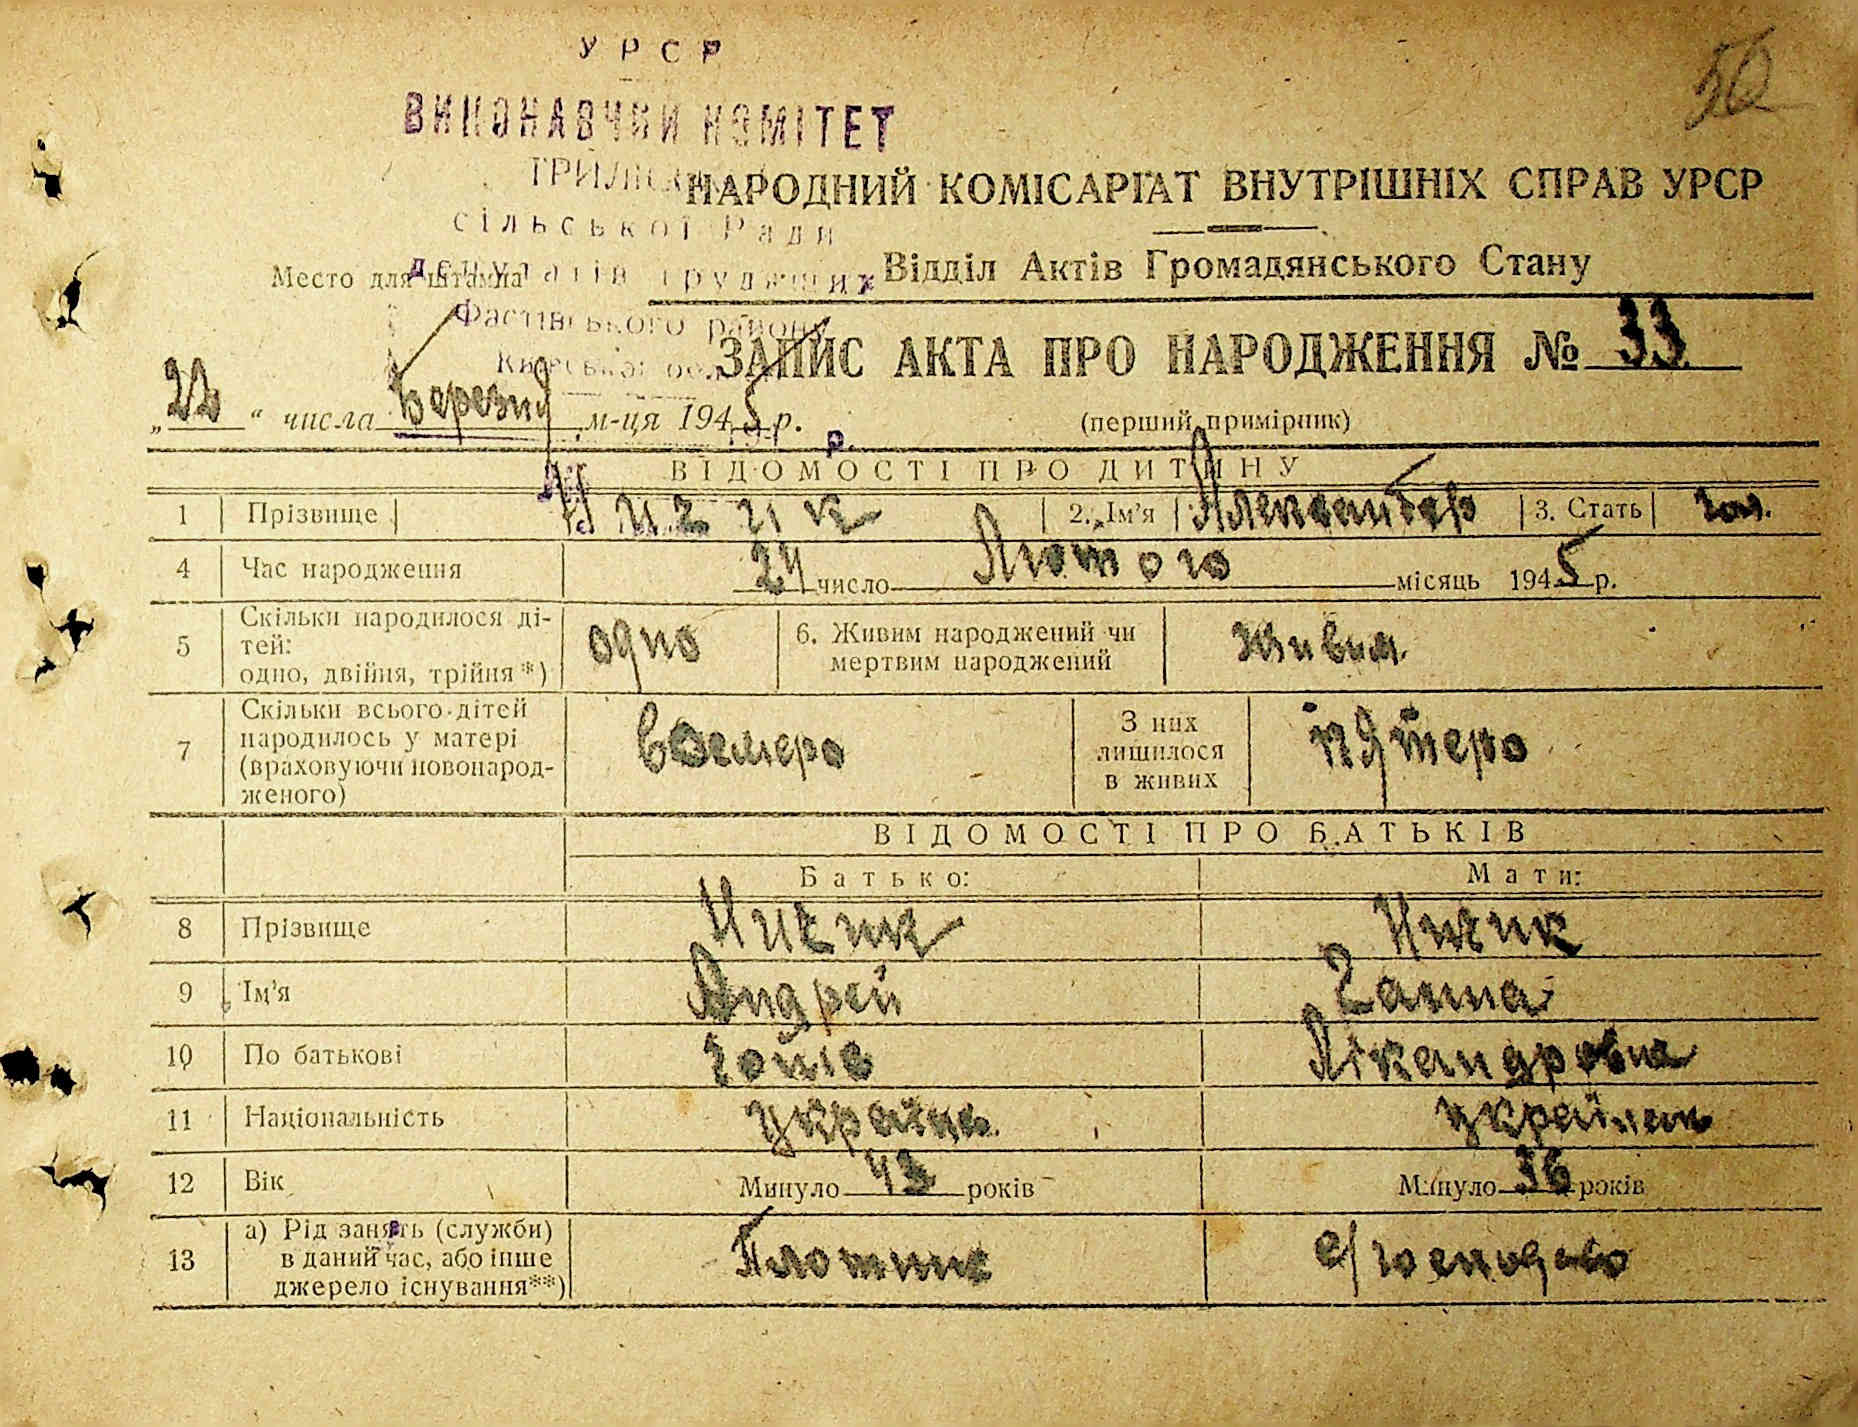 УРСР
50
ВИКОНАВЧИЙ КОМІТЕТ
НАРОДНИЙ КОМІСАРІАТ ВНУТРІШНІХ СПРАВ УРСР
сільської Ради
Відділ Актів Громадянського Стану
Место для штампа
депутатів трудящих
Фастівського району
Київської обл.
ЗАПИС АКТА ПРО НАРОДЖЕННЯ № 33
„22" числа березня м-ця 1945 р.
(перший примірник)
ВІДОМОСТІ ПРО ДИТИНУ
1 Прізвище 2. Ім'я Александер 3. Стать чол.
4 Час народження 24 число Лютого місяць 1945 р.
5 Скільки народилося ді-
тей:
одно, двійня, трійня*) одно 6. Живим народжений чи
мертвим народжений живим
7 Скільки всього дітей
народилось у матері
(враховуючи новонарод-
женого) восмеро З них
лишилося
в живих пятеро
ВІДОМОСТІ ПРО БАТЬКІВ
Батько: Мати:
8 Прізвище
9 Ім'я Андрей Ганна
10 По батькові
11 Національність
12 Вік Минуло 43 років Минуло 36 років
13 а) Рід занять (служби)
в даний час, або інше
джерело існування**) Плотник